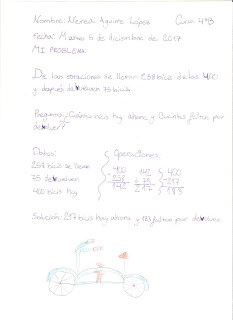 Nombre: Nerea Aguirre López Curso: 4ºB
Fecha: Martes 5 de diciembre de 2017
MI PROBLEMA
De las estaciones se llevan 258 bicis de las 400
y después devuelven 75 bicis
Pregunta: ¿Cuántas bicis hay ahora y cuántas faltan por
devolver?
Datos: Operaciones:
258 bicis se llevan
75 devuelven
400 bicis hay
400 142 400
-258 +75 -217
142 217 183
Solución: 217 bicis hay ahora y 183 faltan por devolver.